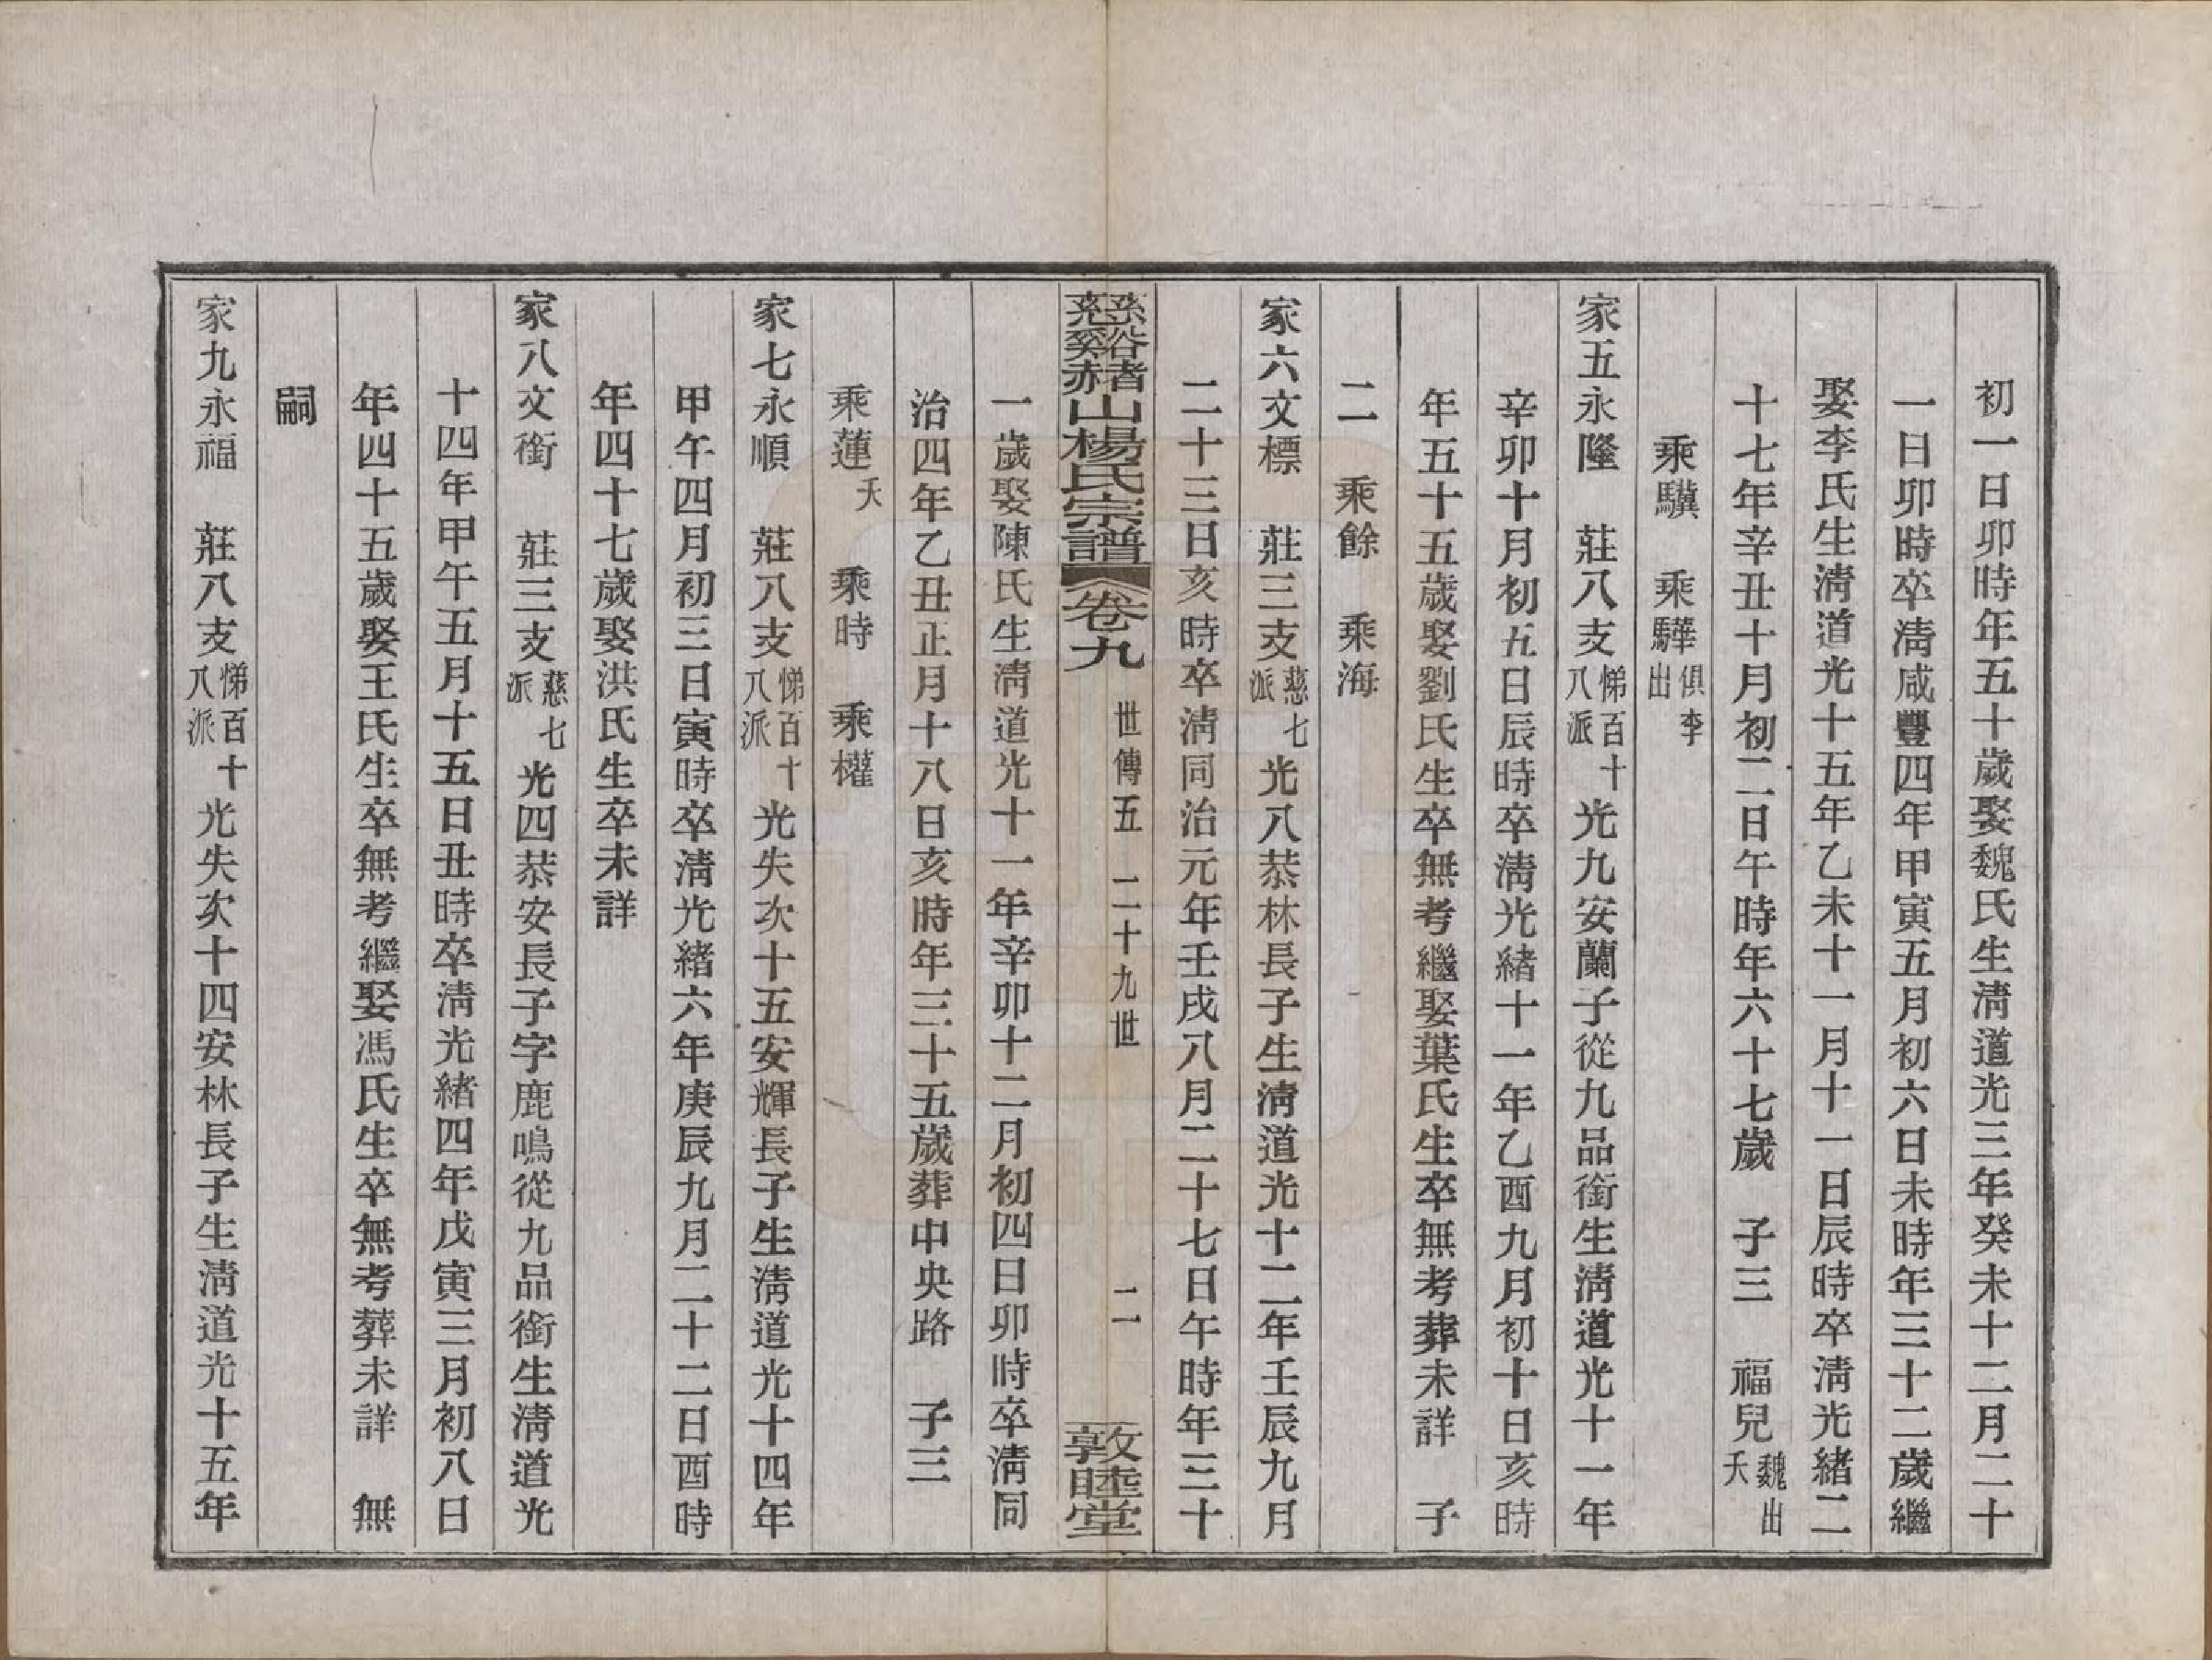 初一日卯時年五十歲娶魏氏生清道光三年癸未十二月二十
一日卯時卒清咸豐四年甲寅五月初六日未時年三十二歲繼
娶李氏生清道光十五年乙未十一月十一日辰時卒清光緒二
十七年辛丑十月初二日午時年六十七歲　子三　福兒魏出夭
乘驥　乘驊俱李出
家五永隆　莊八支悌百十八派光九安蘭子從九品銜生清道光十一年
辛卯十月初五日辰時卒清光緒十一年乙酉九月初十日亥時
年五十五歲娶劉氏生卒無考繼娶葉氏生卒無考葬未詳　子
二　乘餘　乘海
家六文標　莊三支慈七派光八恭林長子生清道光十二年壬辰九月
二十三日亥時卒清同治元年壬戌八月二十七日午時年三十
慈谿赭山楊氏宗譜　卷九　世傳五　二十九世　二　敦睦堂
一歲娶陳氏生清道光十一年辛卯十二月初四日卯時卒清同
治四年乙丑正月十八日亥時年三十五歲葬中央路　子三
乘蓮夭　乘時　乘權
家七永順　莊八支悌百十八派光失次十五安輝長子生清道光十四年
甲午四月初三日寅時卒清光緒六年庚辰九月二十二日酉時
年四十七歲娶洪氏生卒未詳
家八文銜　莊三支慈七派光四恭安長子字鹿鳴從九品銜生清道光
十四年甲午五月十五日丑時卒清光緒四年戊寅三月初八日
年四十五歲娶王氏生卒無考繼娶馮氏生卒無考葬未詳　無
嗣
家九永福　莊八支悌百十八派光失次十四安林長子生清道光十五年